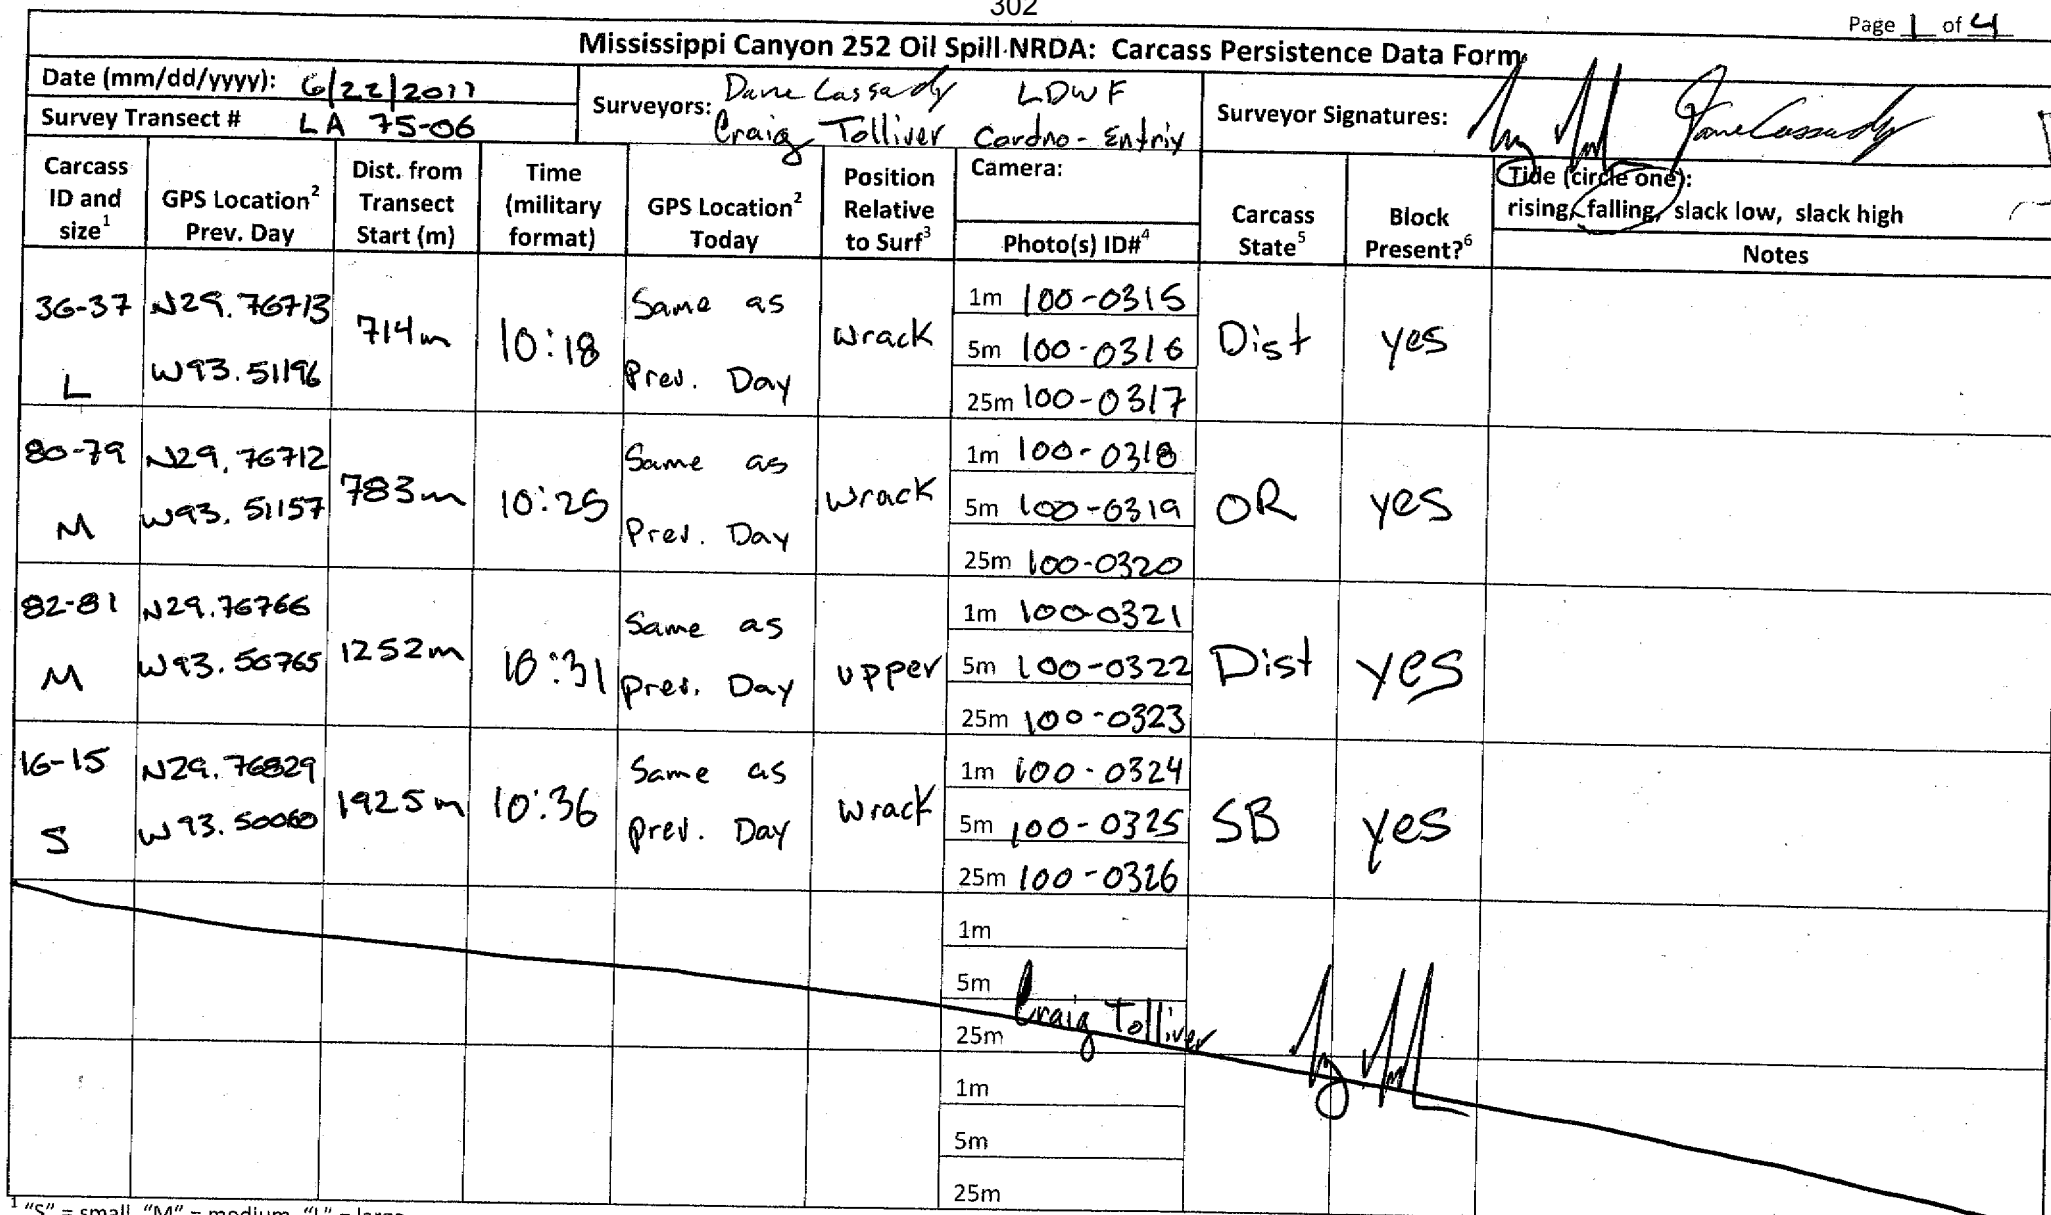 302
Page 1 of 4
Mississippi Canyon 252 Oil Spill NRDA: Carcass Persistence Data Form
Date (mm/dd/yyyy): 6/22/2011
Survey Transect # LA 75-06
Surveyors: Dane Cassady LDWF
Craig Tolliver Cardno-Entrix
Surveyor Signatures:
Carcass ID and size1
GPS Location2 Prev. Day
Dist. from Transect Start (m)
Time (military format)
GPS Location2 Today
Position Relative to Surf3
Camera:
Photo(s) ID#4
Carcass State5
Block Present?6
Tide (circle one):
rising, falling, slack low, slack high
Notes
36-37 L
N29.76713
W93.51196
714m
10:18
Same as
Prev. Day
wrack
1m 100-0315
5m 100-0316
25m 100-0317
Dist
yes
80-79 M
N29.76712
W93.51157
783m
10:25
Same as
Prev. Day
wrack
1m 100-0318
5m 100-0319
25m 100-0320
OR
yes
82-81 M
N29.76766
W93.50765
1252m
10:31
Same as
prev. Day
upper
1m 100-0321
5m 100-0322
25m 100-0323
Dist
yes
16-15 S
N29.76829
W93.50060
1925m
10:36
Same as
prev. Day
wrack
1m 100-0324
5m 100-0325
25m 100-0326
SB
yes
1m
5m
25m
Craig Tolliver
1m
5m
25m
1 "S" = small, "M" = medium, "L" = large